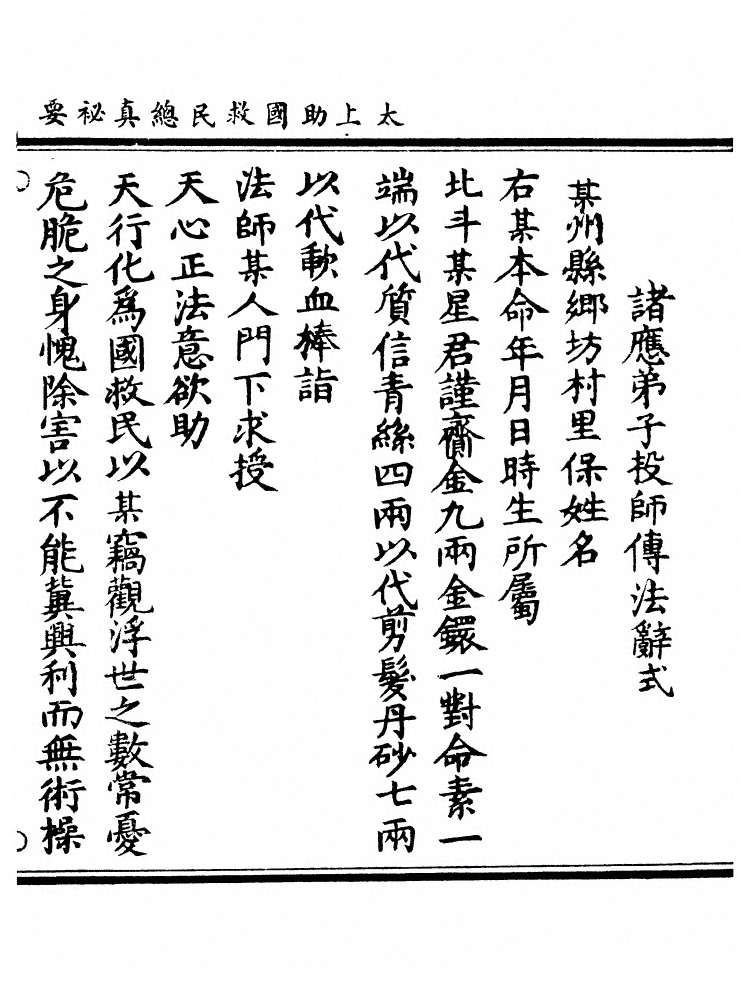 太上助國救民總真祕要
諸應弟子投師傳法辭式
某州縣鄉坊村里保姓名
右某本命年月日時生所屬
北斗某星君謹齎金九兩金鐶一對命素一
端以代質信青絲四兩以代剪髮丹砂七兩
以代歃血捧詣
法師某人門下求授
天心正法意欲助
天行化為國救民以某竊觀浮世之數常憂
危脆之身愧除害以不能冀興利而無術操